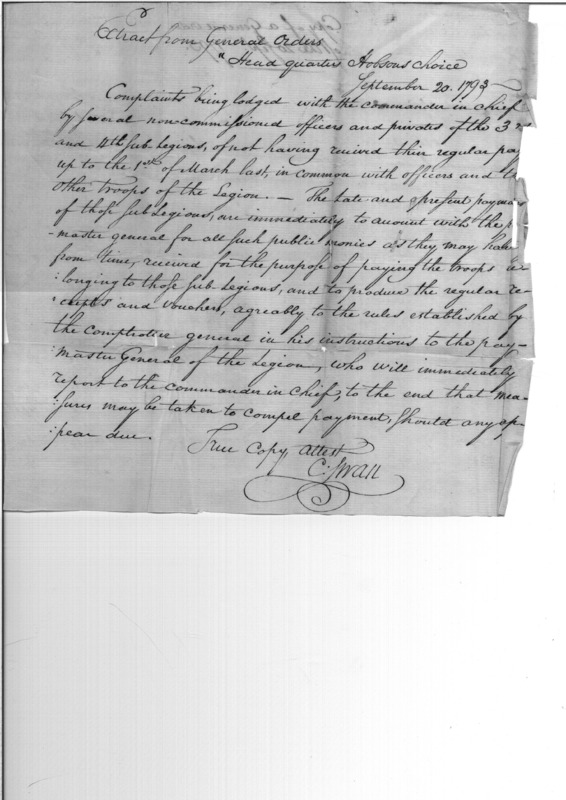 Extract from General Orders
"Head quarters Hobsons choice
September 20. 1793
Complaints being lodged with the commander in chief
by several non commissioned officers and privates of the 3rd
and 4th Sub Legions, of not having recived their regular pay
up to the 1st of March last, in common with officers and
other Troops of the Legion. — The late and present paymas
of those Sub Legions, are immediately to account with the p
-master general for all such public monies as they may have
from time, recived for the purpose of paying the troops be
:longing to those sub-Legions, and to produce the regular re
:ceipts and vouchers, agreably to the rules established by
the Comptroler general in his instructions to the pay-
Master General of the Legion, who will immediately
report to the commander in chief, to the end that mea
:sures may be taken to compel payment, should any ap-
:pear due.
True Copy attest
C: Swan